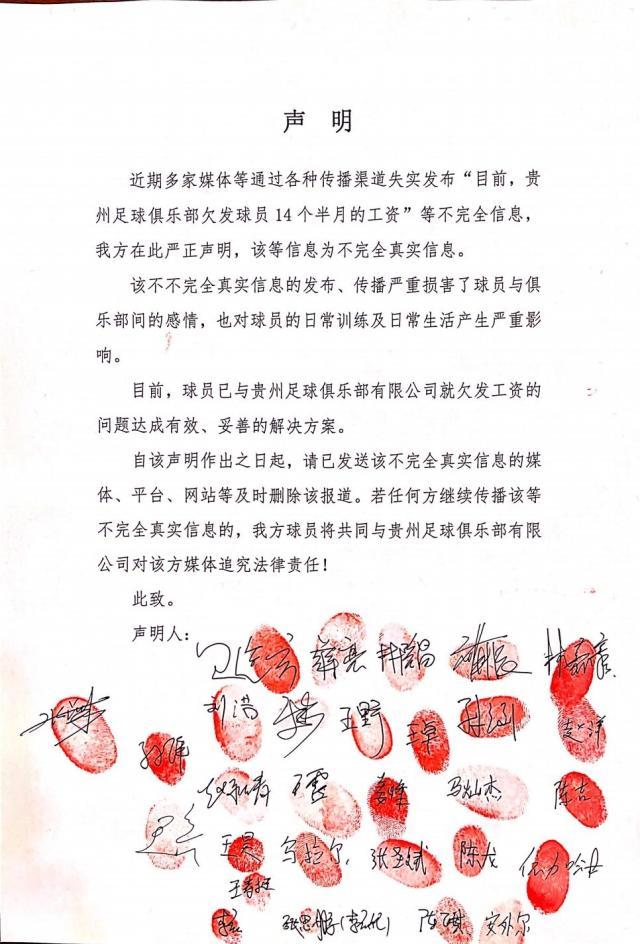 声 明
近期多家媒体等通过各种传播渠道失实发布“目前，贵
州足球俱乐部欠发球员14个半月的工资”等不完全信息，
我方在此严正声明，该等信息为不完全真实信息。
该不不完全真实信息的发布、传播严重损害了球员与俱
乐部间的感情，也对球员的日常训练及日常生活产生严重影
响。
目前，球员已与贵州足球俱乐部有限公司就欠发工资的
问题达成有效、妥善的解决方案。
自该声明作出之日起，请已发送该不完全真实信息的媒
体、平台、网站等及时删除该报道。若任何方继续传播该等
不完全真实信息的，我方球员将共同与贵州足球俱乐部有限
公司对该方媒体追究法律责任！
此致。
声明人：
刘浩 王野
马灿杰 陈吉
王昊 乌拉尔 张圣斌 陈龙
安外尔